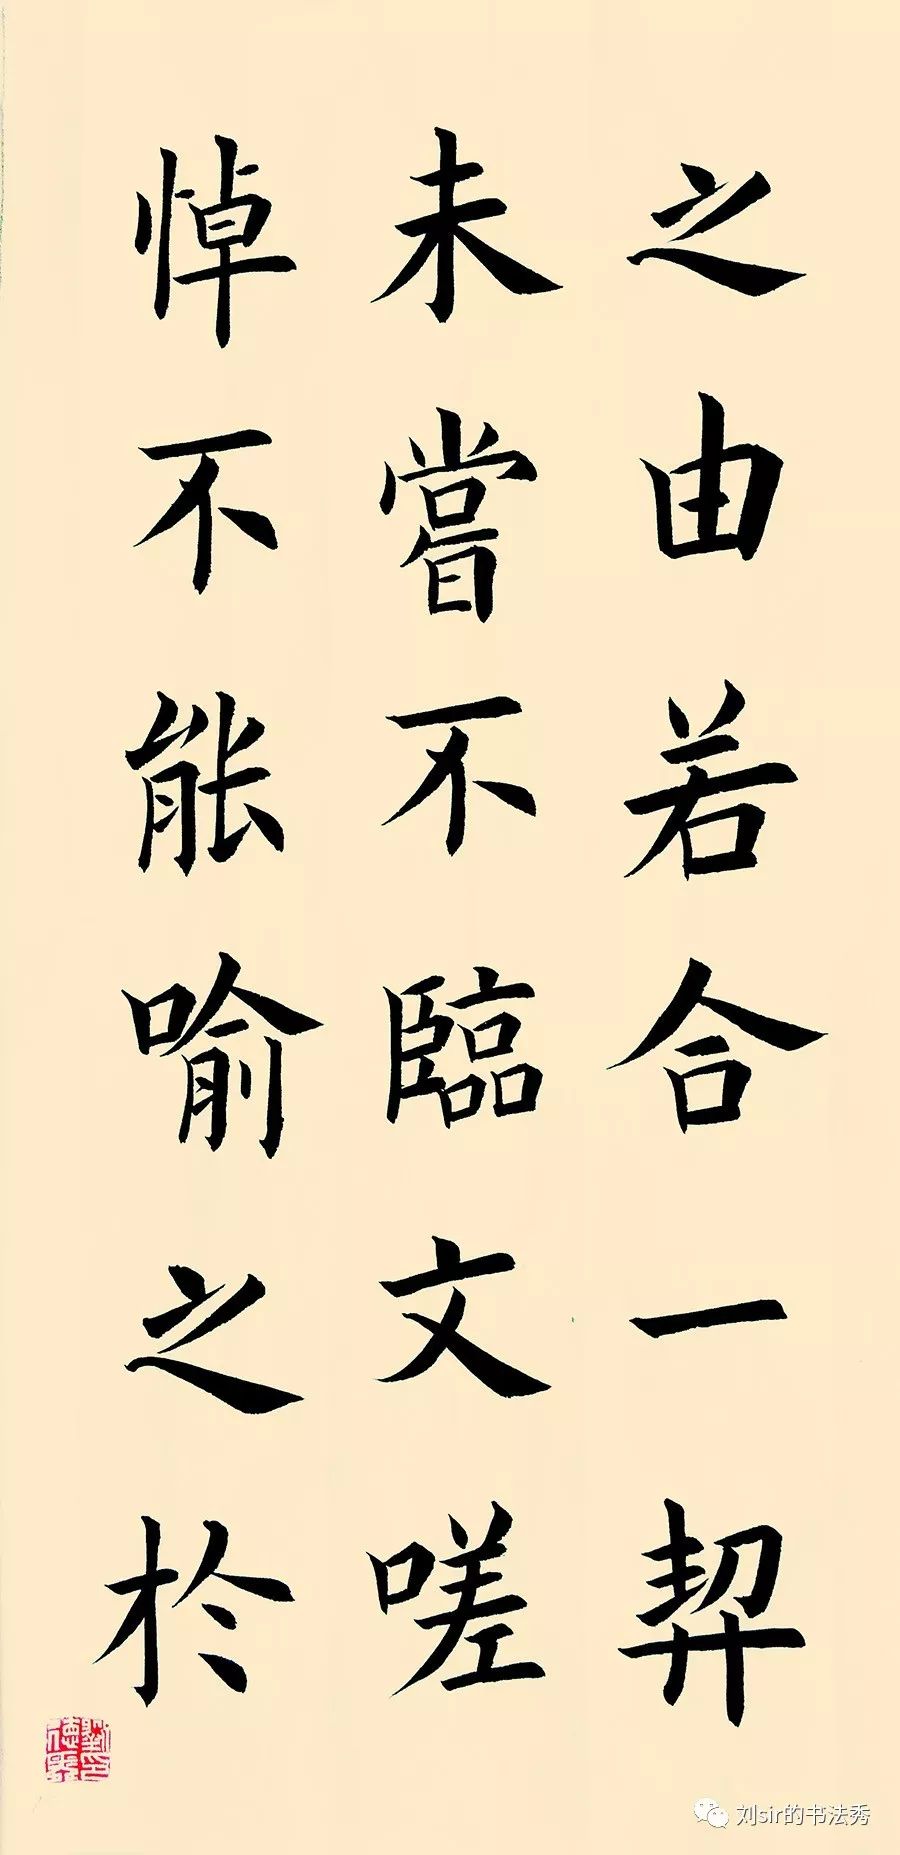 之由若合一契
未嘗不臨文嗟
悼不能喻之於
刘sir的书法秀